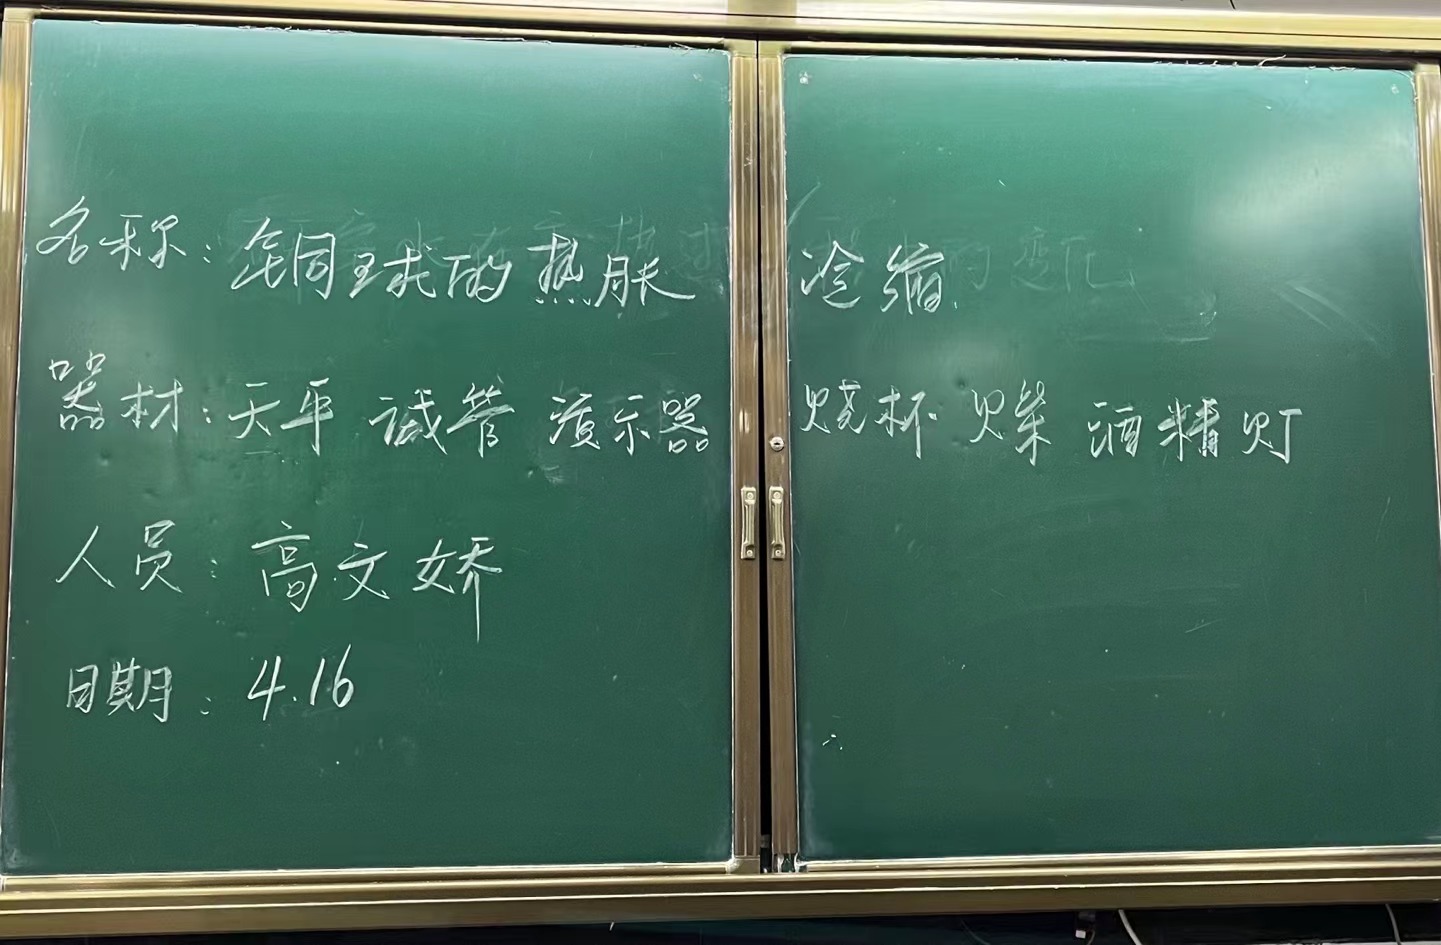 名称：铜球的热胀冷缩.
器材：天平 试管 演示器 烧杯 火柴 酒精灯
人员：高文娇
日期：4.16